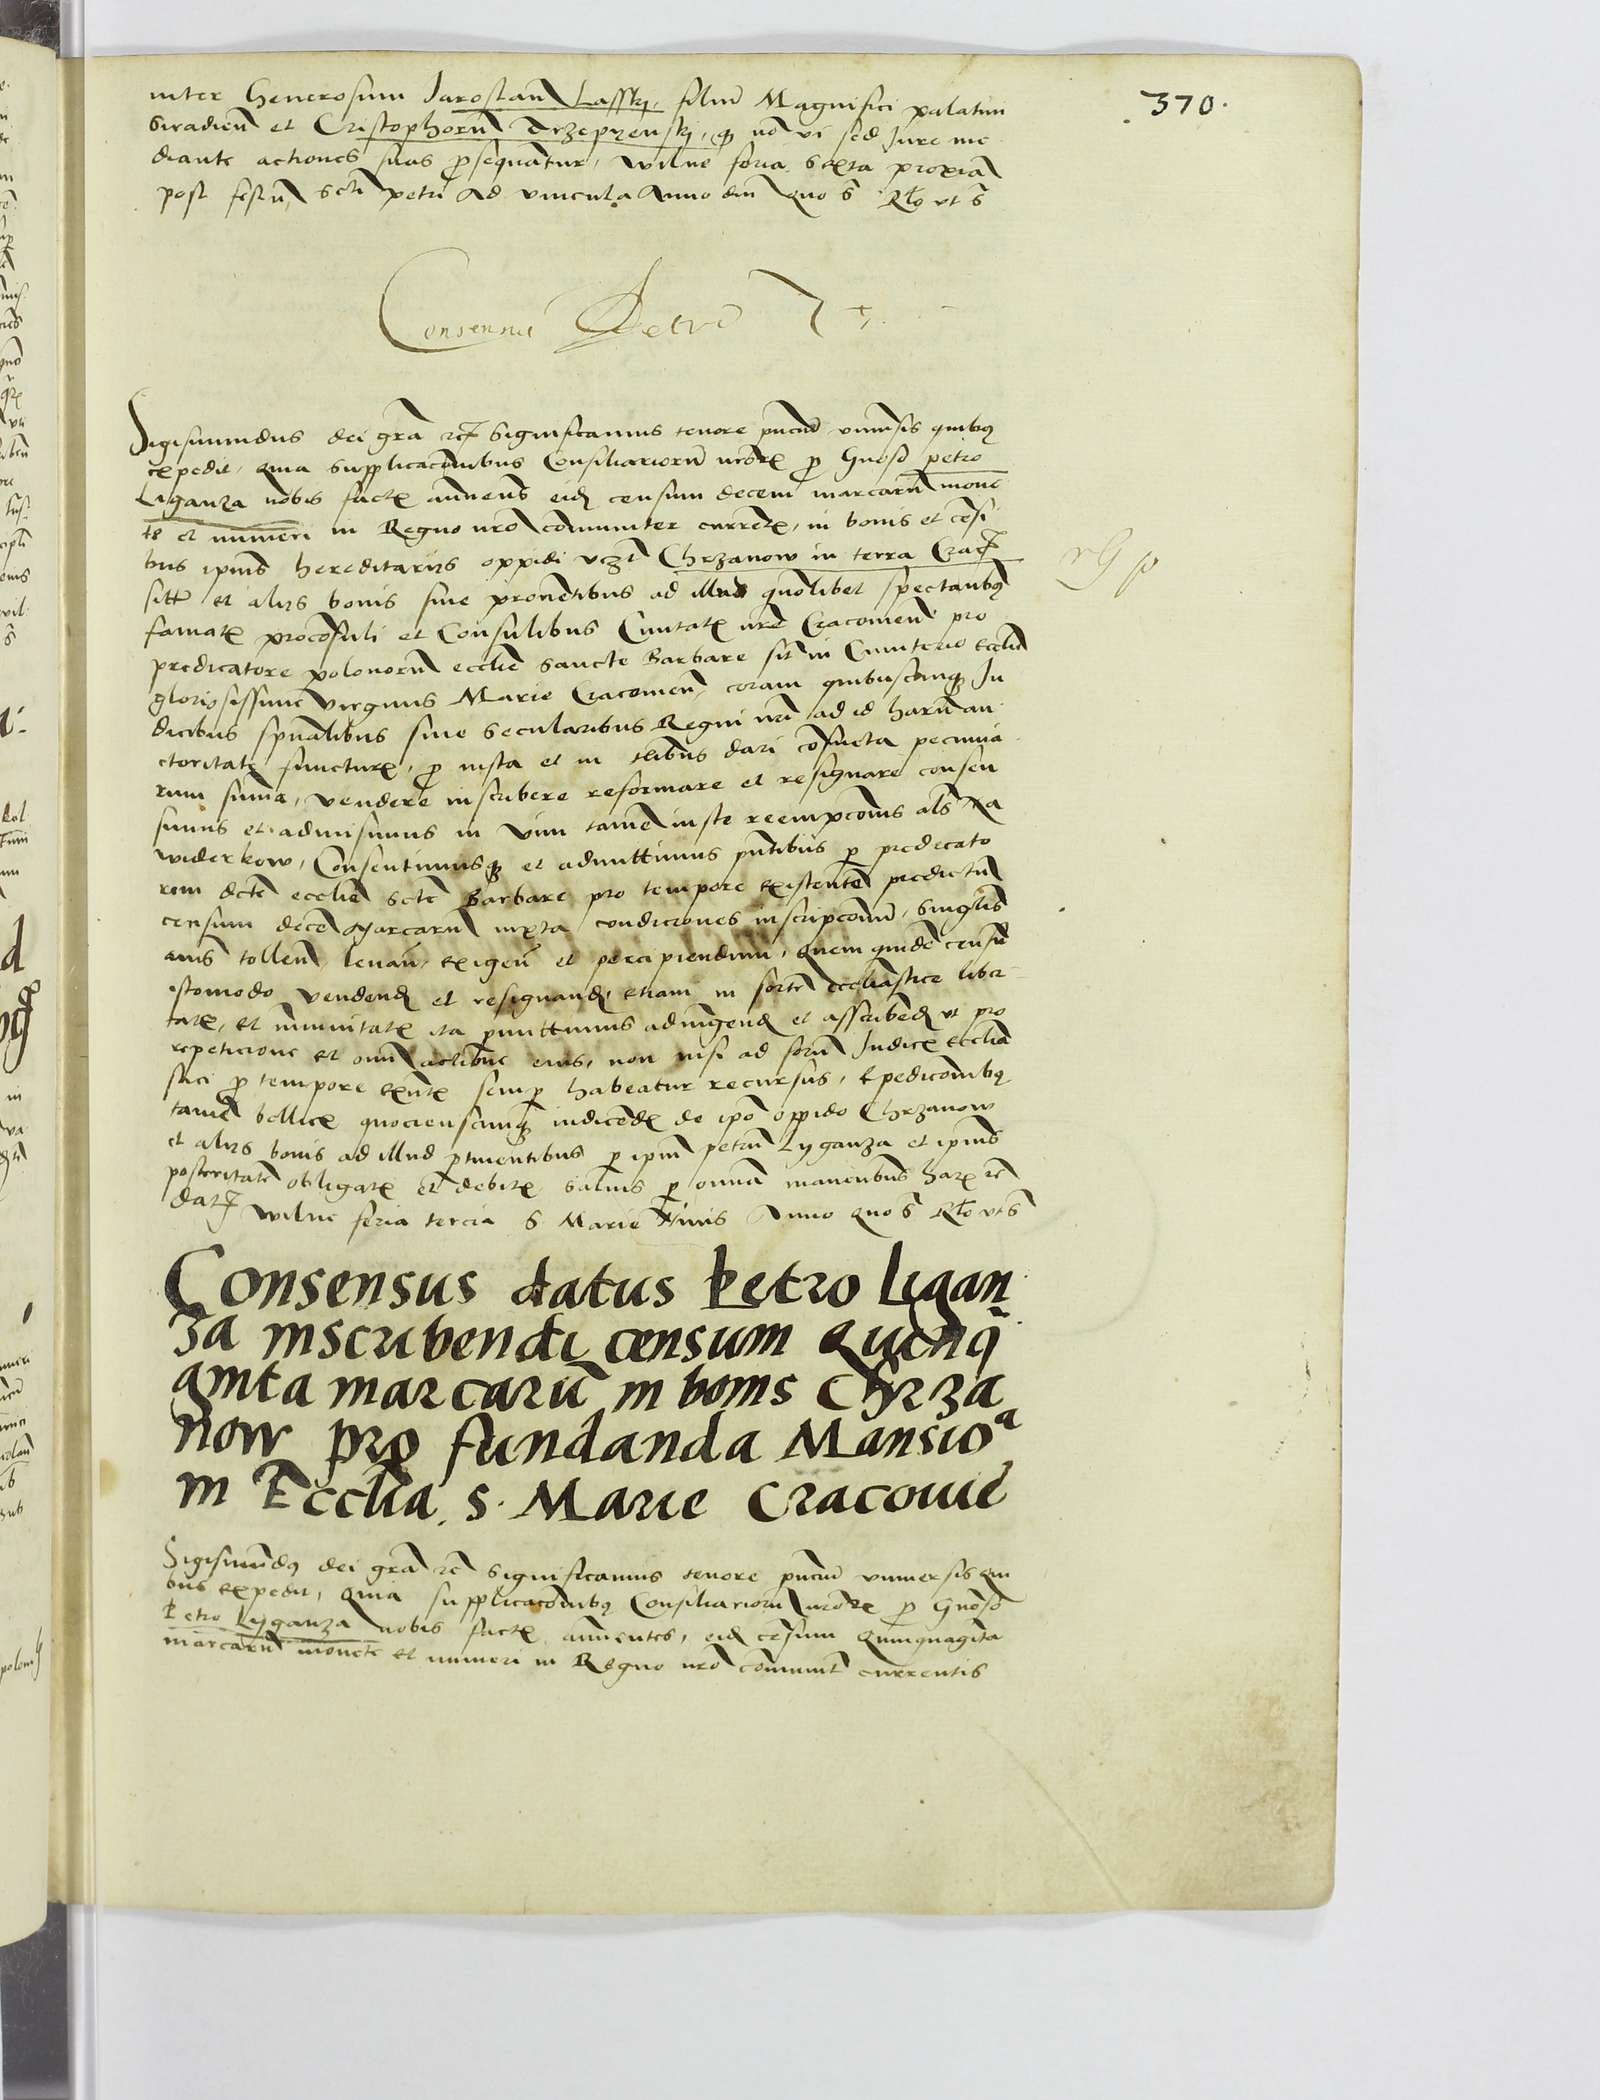 370.
inter Generosum Jaroslaũ Lassky, filiũ Magnifici palatini
Siradieñ et Cristophorũ Trzepyenskj, nõ vi sed Jure me
diante actiones suas psequãtur, wilne feria sexta proxiã
post festũ sctĩ petri Ad vincula Anno dnĩ quo s̃ Rto ut s̃
Consensus Petro
Sigismundus dei grã Significamus tenore pñciũ quibus
expedit, quia supplicacõnibus Consiliariorũ nrõr p Gnoso petro
Liganza nobis factis annueñs eidẽ censum decem marcarũ mone
te et numeri in Regno nrõ cõmuniter currẽtis, in bonis et cẽsi
bus ipius hereditariis oppidi Chrzanow in terra Crac
et aliis bonis sive proventibus ad illud quõlibet spectantibus
famatis procõsuli et Consulibus Civitatis nrẽ Cracovieñ pro
predicatore polonorũ ecclie Sancte Barbare sit in Cimiterio ecclie
gloriosissime virginis Marie Cracovieñ, coram quibuscunque Ju
dicibus spũalibus sive Secularibus Regni nrĩ ad id harũ au
ctoritate functuris, p iusta et in dari cõsueta pecunia
rum suma, vendere inscribere reformare et resignare consen
simus et admisimus in vim tamẽ iuste reempcõnis als na
widerkow, Consentimusque et admittimus pñtibus p predicato
rem dicte ecclie scte Barbare pro tempore existentẽ predictũ
censum decẽ Marcarũ iuxta condiciones inscripcõnũ, singulis
anis tolleñ, levañ, exigeñ et percipiendum, quem quidẽ censũ
istomodo vendendẽ et resignandẽ, etiam in sortẽ ecclesiastice liber
tatis, et imunitatis ita pmittimus adiungendẽ et asscribendẽ ut pro
repeticione et oĩni actione eius, non nisi ad forũ Judicis ecclia
stici p tempore exñtis semp habeatur recursus, expedicõnibus
tamẽ bellicis quociescunque indicendis de ipõ oppido Chrzanow
et aliis bonis ad illud ptinentibus p ipm petrũ Lyganza et ipius
posteritatẽ obligatis et debitis salvis p omĩa manentibus harũ
dat wilne feria tercia S Marie Nivis Anno quo s̃ Rto ut s̃
Consensus datus Petro Ligan
za inscribendi censum Quinq
ginta marcarũ in bonis Chrza
now pro fundanda Mansioª
in Ecclia. S. Marie Cracovie
Sigismũdus dei grã Significamus tenore pñciũ universis qui
bus expedit, quia supplicacõnibus Consiliariorũ nrõr p Gnoso
Petro Lyganza nobis factis annuentes, eidẽ cẽsum Quinquagita
marcarũ monete et numeri in Regno nrõ cõmunit̃ currentis